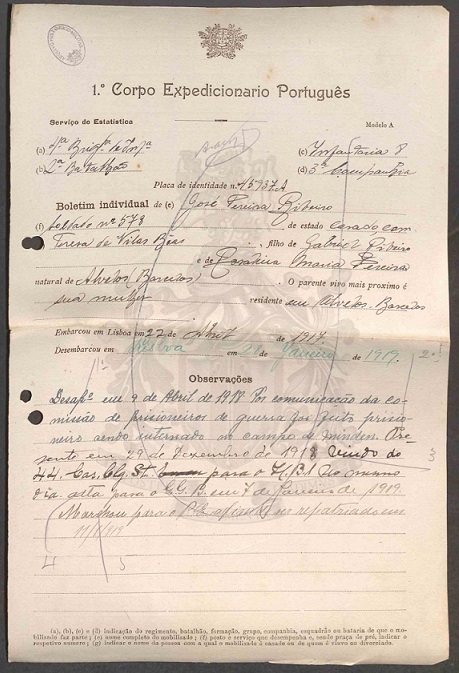 1.º Corpo Expedicionario Português
Serviço de Estatistica
Modelo A
(a) 4ª Brigª de Infª (c) Infantaria 8
(b) 2º Batalhão (d) 3ª Companhia
Placa de identidade n.º 15737A
Boletim individual de (e) José Pereira Ribeiro
(f) Soldado nº 573 de estado casado com
Teresa de Vilas Bôas, filho de Gabriel Ribeiro
e de Carolina Maria Pereira
natural de Alvelos Barcelos O parente vivo mais proximo é
sua mulher residente em Alvelos Barcelos
Embarcou em Lisboa em 22 de Abril de 1917
Desembarcou em Lisboa em de Janeiro de 1919. 2º
Observações
Desapº em 9 de Abril de 1918 Por comunicação da co-
missão de prisioneiros de guerra foi feito prisio-
neiro sendo internado no campo de Minden. Pre-
sente em 29 de Dezembro de 1918 vindo do 3
44. Cas. Clg. St. para o No mesmo
dia alta para o em 7 de Janeiro de 1919.
Marchou para o afim de ser repatriado em
11/1/919
4 5
(a), (b), (c) e (d) indicação do regimento, batalhão, formação, grupo, companhia, esquadrão ou bataria de que o mo-
bilisado faz parte; (e) nome completo do mobilisado; (f) posto e serviço que desempenha e, sendo praça de pré, indicar o
respetivo numero; (g) indicar o nome da pessoa com a qual o mobilisado é casado ou de quem é viuvo ou divorciado.